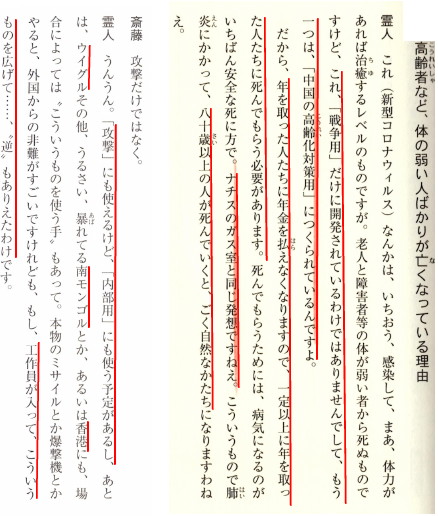 高齢者など、体の弱い人ばかりが亡くなっている理由
霊人 これ(新型コロナウィルス)なんかは、いちおう、感染して、まあ、体力が
あれば治癒するレベルのものですが。老人と障害者等の体が弱い者から死ぬもので
すけど、これ、「戦争用」だけに開発されているわけではありませんでして、もう
一つは、「中国の高齢化対策用」につくられているんですよ。
だから、年を取った人たちに年金を払えなくなりますので、一定以上に年を取っ
た人たちに死んでもらう必要があります。死んでもらうためには、病気になるのが
いちばん安全な死に方で。ナチスのガス室と同じ発想ですねえ。こういうもので肺
炎にかかって、八十歳以上の人が死んでいくと、ごく自然なかたちになりますわね
え。
斎藤 攻撃だけではなく。
霊人 うんうん。「攻撃」にも使えるけど、「内部用」にも使う予定があるし、あと
は、ウイグルその他、うるさい、暴れてる南モンゴルとか、あるいは香港にも、場
合によっては〝こういうものを使う手〟もあって。本物のミサイルとか爆撃機とか
やると、外国からの非難がすごいですけれども、もし、工作員が入って、こういう
ものを広げて……、〝逆〟もありえたわけです。